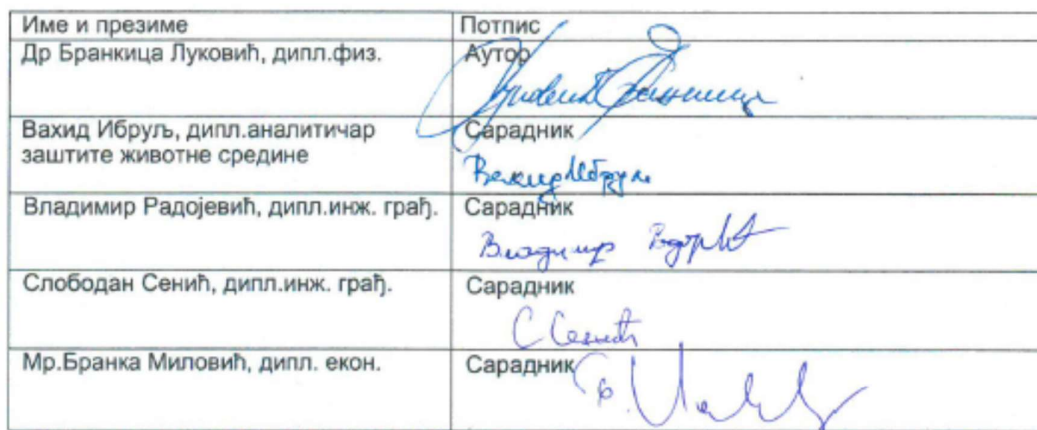 Име и презиме
Потпис
Др Бранкица Луковић, дипл.физ.
Аутор
Луковић Бранкица
Вахид Ибруљ, дипл.аналитичар
заштите животне средине
Сарадник
Вахид Ибруљ
Владимир Радојевић, дипл.инж. грађ.
Сарадник
Владимир
Слободан Сенић, дипл.инж. грађ.
Сарадник
С Сенић
Мр.Бранка Миловић, дипл. екон.
Сарадник